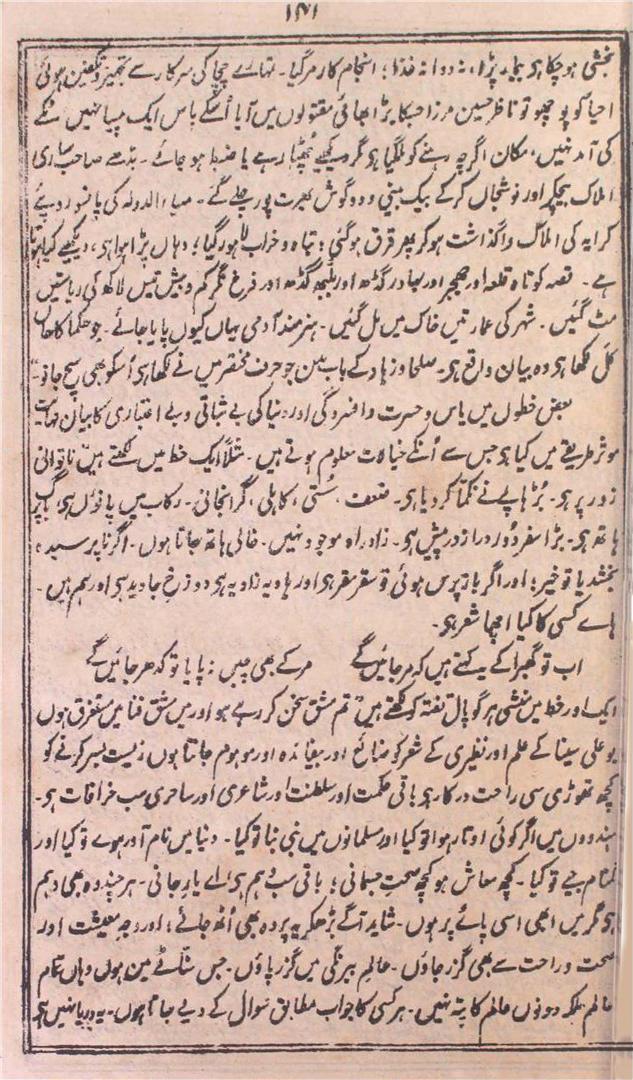 ۱۴۱
بخشی ہو چکا ہی بیمار پڑا، نہ دوا نہ غذا؛ انجام کار مر گیا۔ تمہارے چچا کی سرکار سے تجہیز و تکفین ہوئی
احیا کو پوچھو تو ناظر حسین مرزا جسکا بڑا بھائی مقتولوں میں آیا اُسکے پاس ایک پیسا نہیں ٹکے
کی آمد نہیں، مکان اگرچہ رہنے کو ملگیا ہی مگر دیکھیے چھٹا رہے یا ضبط ہو جائے۔ بڈھے صاحب ساری
املاک بیچکر اور نوشجاں کرکے بیک بینی و دو گوش بھرت پور چلے گئے۔ ضیاء الدولہ کی پانسو روپئے
کرایہ کی املاک واگذاشت ہوکر پھر قرق ہوگئی؛ تباہ و خراب لاہور گیا؛ وہاں پڑا ہوا ہی، دیکھیے کیا ہوتا
ہے۔ قصہ کوتاہ قلعہ اور جھجر اور بہادر گڈھ اور بلبھ گڈھ اور فرخ نگر کم و بیش تیس لاکھ کی ریاستیں
مٹ گئیں۔ شہر کی عمارتیں خاک میں مل گئیں۔ ہنرمند آدمی یہاں کیوں پایا جائے۔ جو حکما کا حال
کل لکھا ہی وہ بیان واقع ہی۔ صلحا و زہاد کے باب مین جو حرف مختصر میں نے لکھا ہی اُسکو بھی سچ جانو۔"
بعض خطوں میں یاس و حسرت و افسردگی اور دنیا کی بے ثباتی و بے اعتباری کا بیان نہایت
موثر طریقے میں کیا ہی جس سے اُنکے خیالات معلوم ہوتے ہیں۔ مثلاً ایک خط میں لکھتے ہیں "ناتوانی
زور پر ہی۔ بُڑھاپے نے نکمّا کر دیا ہی۔ ضعف، سُستی، کاہلی، گرانجانی۔ رکاب میں پانوں ہی، باگ پر
ہاتھ ہی۔ بڑا سفر دُور و دراز در پیش ہی۔ زاد راہ موجود نہیں۔ خالی ہاتھ جاتا ہوں۔ اگر نا پرسیدہ
بخشدیا تو خیر؛ اور اگر باز پرس ہوئی تو سقر مقر ہی اور ہاویہ زاویہ ہی دوزخ جاوید ہی اور ہم ہیں۔
ہاے کسی کا کیا اچھا شعر ہی۔
اب تو گھبرا کے یہ کہتے ہیں کہ مر جائیں گے مر کے بھی چین نہ پایا تو کدھر جائیں گے
ایک اور خط میں منشی ہرگوپال تفتہ کو لکھتے ہیں "تم مشق سخن کر رہے ہو اور میں مشق فنا میں مستغرق ہوں
بو علی سینا کے علم اور نظیری کے شعر کو ضائع اور بیفائدہ اور موہوم جانتا ہوں زیست بسر کرنے کو
کچھ تھوڑی سی راحت درکار ہی باقی حکمت اور سلطنت اور شاعری اور ساحری سب خرافات ہی۔
ہندووں میں اگر کوئی اوتار ہوا تو کیا اور مسلمانوں میں نبی بنا تو کیا۔ دنیا میں نام آور ہوے تو کیا اور
گمنام جیے تو کیا۔ کچھ معاش ہو کچھ صحتِ جسمانی؛ باقی سب وہم ہی اے یارِ جانی۔ ہر چند وہ بھی وہم
ہی مگر میں ابھی اسی پائے پر ہوں۔ شاید آگے بڑھکر یہ پردہ بھی اُٹھ جائے؛ اور وجہِ معیشت اور
صحت و راحت سے بھی گزر جاوں۔ عالمِ بیرنگی میں گزر پاؤں۔ جس سنّاٹے مین ہوں وہاں تمام
عالم بلکہ دونوں عالم کا پتہ نہیں۔ ہر کسی کا جواب مطابق سوال کے دیے جاتا ہوں۔ یہ دریا نہیں ہی